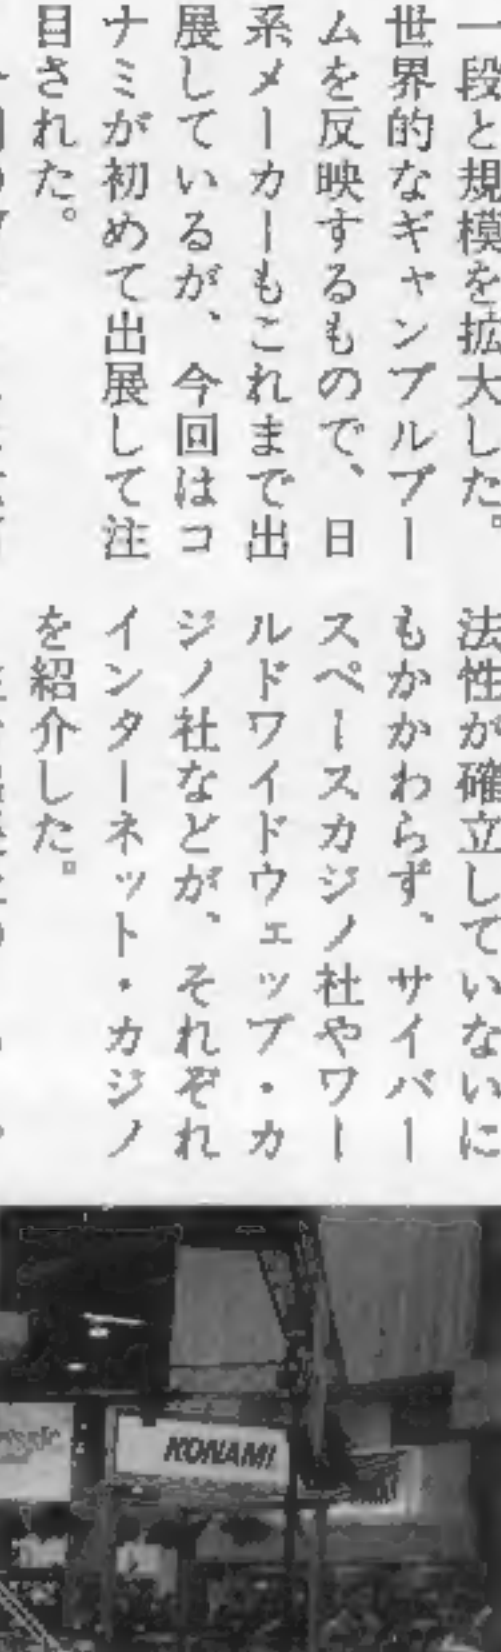 一段と規模を拡大した。
世界的なギャンブルブー
ムを反映するもので、日
系メーカーもこれまで出
展しているが、今回はコ
ナミが初めて出展して注
目された。
法性が確立していないに
もかかわらず、サイバー
スペースカジノ社やワー
ルドワイドウェッブ・カ
ジノ社などが、それぞれ
インターネット・カジノ
を紹介した。
KONAMI